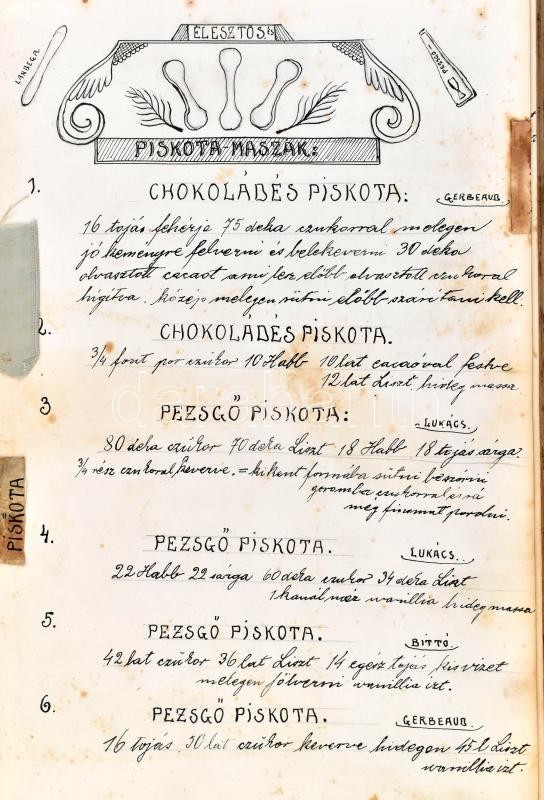 ÉLESZTŐS és
LANBEGA
PESGŐ
PISKOTA-MASZÁK:
1. CHOKOLÁDÉS PISKOTA: GERBEAUD.
16 tojás fehérje 75 deka czukorral melegen
jó keményre felverni és belekeverni 30 deka
olvasztott cacaot ami lesz előbb olvasztott czukorral
higítva. középmelegen sütni előbb szárítani kell.
2. CHOKOLÁDÉS PISKOTA.
3/4 font por czukor 10 Habb 10 lat cacaóval festve
12 lat Liszt hideg massa
3 PEZSGŐ PISKOTA: LUKÁCS.
80 deka czukor 70 deka Liszt 18 Habb 18 tojás sárga.
3/4 rész czukorral keverve. = kikent formába sütni beszórni
goromba czukorral és rá
még finomat pordni.
PISKOTA
4. PEZSGŐ PISKOTA. LUKÁCS.
22 Habb 22 sárga 60 deka czukor 34 deka Liszt
1 kanál méz wanillia hideg massa
5. PEZSGŐ PISKOTA. BITTÓ.
42 lat czukor 36 lat Liszt 14 egész tojás kis vizet
melegen fölverni wanillia izt.
6. PEZSGŐ PISKOTA. GERBEAUD.
16 tojás 30 lat czukor keverve hidegen 45 l Liszt
wanillia izt.
darabanth